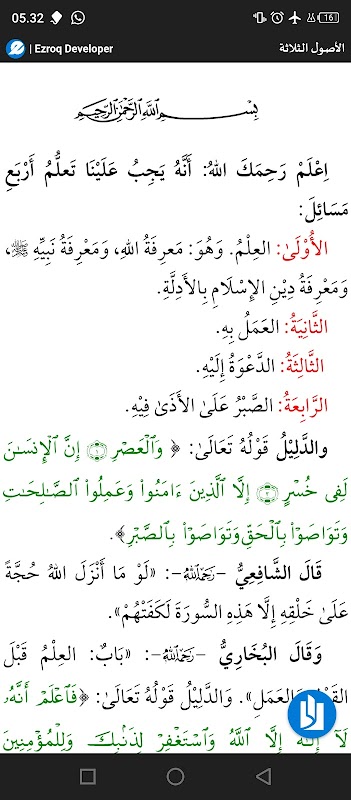 05.32
16
| Ezroq Developer
الأصول الثلاثة
بِسْمِ اللَّهِ الرَّحْمَٰنِ الرَّحِيمِ
اِعْلَمْ رَحِمَكَ اللهُ: أَنَّهُ يَجِبُ عَلَيْنَا تَعلُّمُ أَرْبَعِ
مَسَائِلَ:
الأُوْلَىٰ: العِلْمُ. وَهُوَ: مَعرِفَةُ اللهِ، وَمَعْرِفَةُ نَبِيِّهِ ﷺ،
وَمَعْرِفَةُ دِيْنِ الإِسْلَامِ بِالأَدِلَّةِ.
الثَّانِيَةُ: العَمَلُ بِهِ.
الثَّالِثَةُ: الدَّعْوَةُ إِلَيْهِ.
الرَّابِعَةُ: الصَّبْرُ عَلَىٰ الأَذَىٰ فِيْهِ.
والدَّلِيْلُ قَوْلُهُ تَعَالَىٰ: ﴿ وَٱلْعَصْرِ ۝١ إِنَّ ٱلْإِنسَـٰنَ
لَفِى خُسْرٍ ۝٢ إِلَّا ٱلَّذِينَ ءَامَنُوا۟ وَعَمِلُوا۟ ٱلصَّـٰلِحَـٰتِ
وَتَوَاصَوْا۟ بِٱلْحَقِّ وَتَوَاصَوْا۟ بِٱلصَّبْرِ﴾.
قَالَ الشَّافِعِيُّ –رَحِمَهُ اللهُ–: «لَوْ مَا أَنْزَلَ اللهُ حُجَّةً
عَلَىٰ خَلْقِهِ إِلَّا هَذِهِ السُّورَةَ لَكَفَتْهُمْ».
وَقَالَ البُخَارِيُّ –رَحِمَهُ اللهُ–: «بَابٌ: العِلْمُ قَبْلَ
القَوْلِ وَالعَمَلِ». وَالدَّلِيْلُ قَوْلُهُ تَعَالَىٰ: ﴿فَٱعْلَمْ أَنَّهُۥ
لَآ إِلَـٰهَ إِلَّا ٱللَّهُ وَٱسْتَغْفِرْ لِذَنۢبِكَ وَلِلْمُؤْمِنِينَ